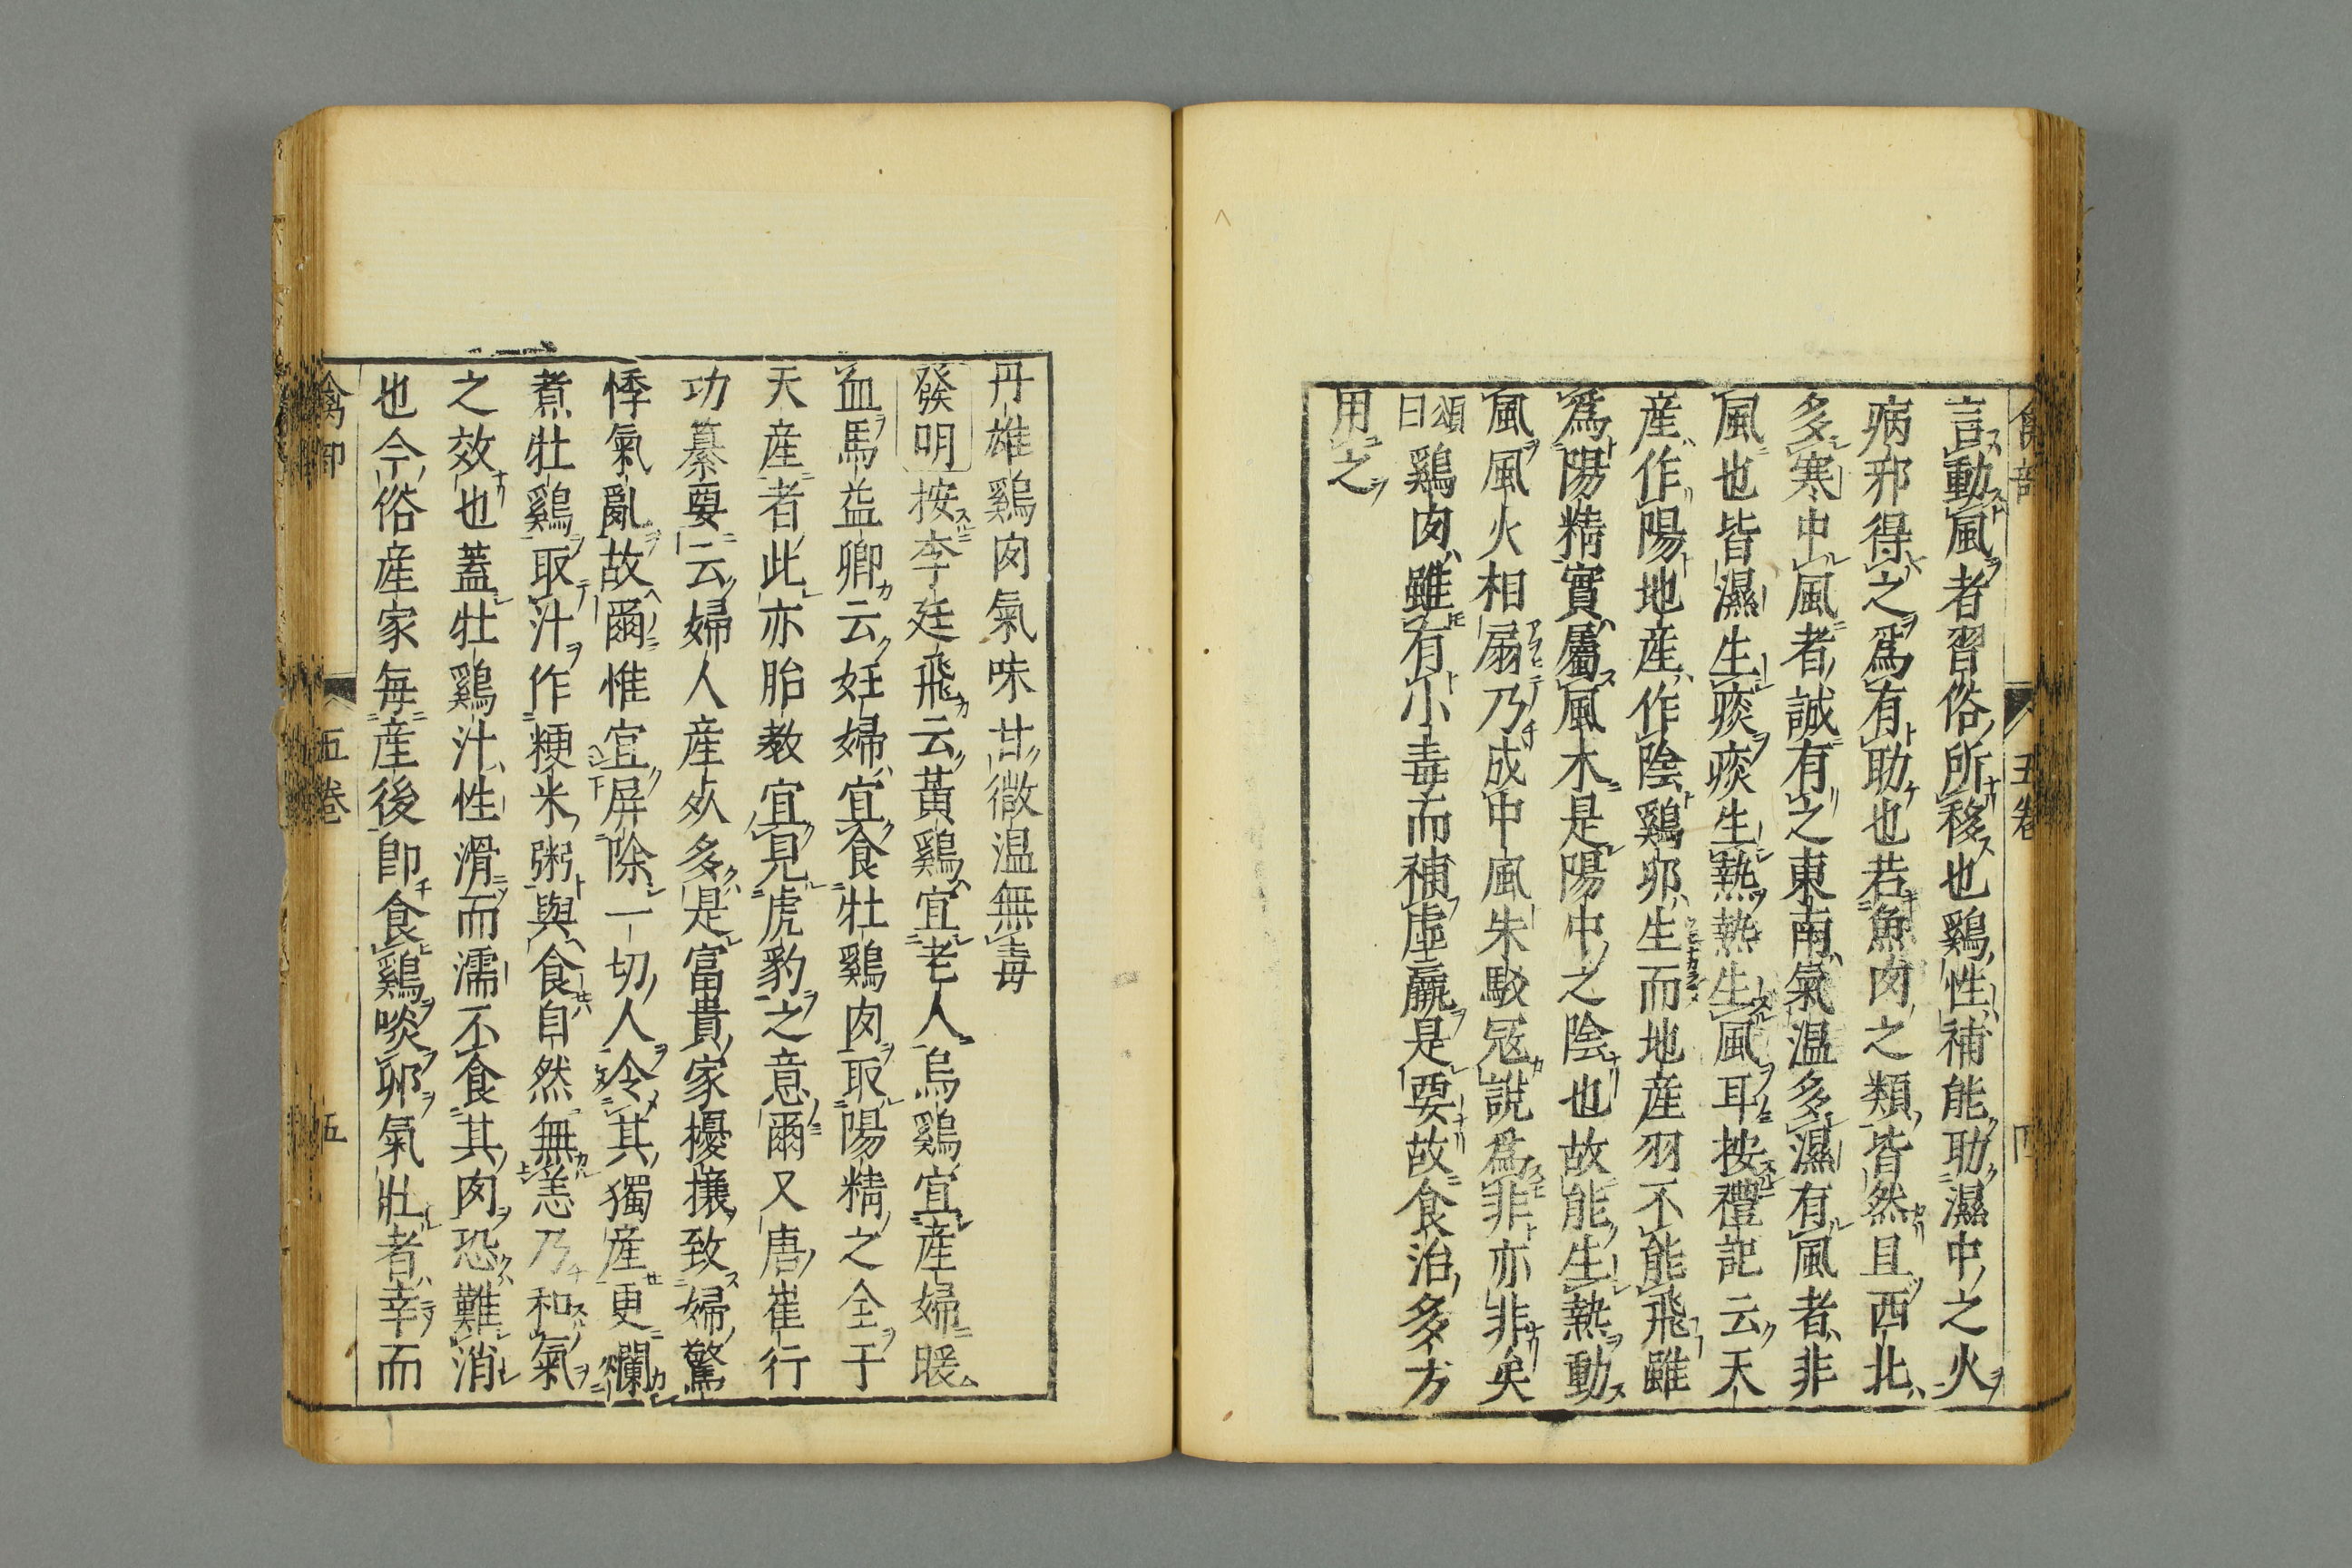 言動風者習俗所移也鷄性補能助濕中之火
病邪得之爲有助也若魚肉之類皆然且西北
多寒中風者誠有之東南氣温多濕有風者非
風也皆濕生痰痰生熱熱生風耳按禮記云天
産作陽地産作陰鷄卵生而地産羽不能飛雖
爲陽精實屬風木是陽中之陰也故能生熱動
風風火相扇乃成中風朱駁冦說爲非亦非矣
頌曰鷄肉雖有小毒而補虛羸是要故食治多方
用之
五卷
丹雄鷄肉氣味甘微温無毒
發明按李廷飛云黃鷄宜老人烏鷄宜産婦暖
血馬益卿云妊婦宜食牡鷄肉取陽精之全于
天産者此亦胎教宜見虎豹之意爾又唐崔行
功纂要云婦人産死多是富貴家擾攘致婦驚
悸氣亂故爾惟宜屏除一切人令其獨産更爛
煮牡鷄取汁作粳米粥與食自然無恙乃和氣
之效也蓋牡鷄汁性滑而濡不食其肉恐難消
也今俗産家每産後卽食鷄啖卵氣壯者幸而
五卷 五